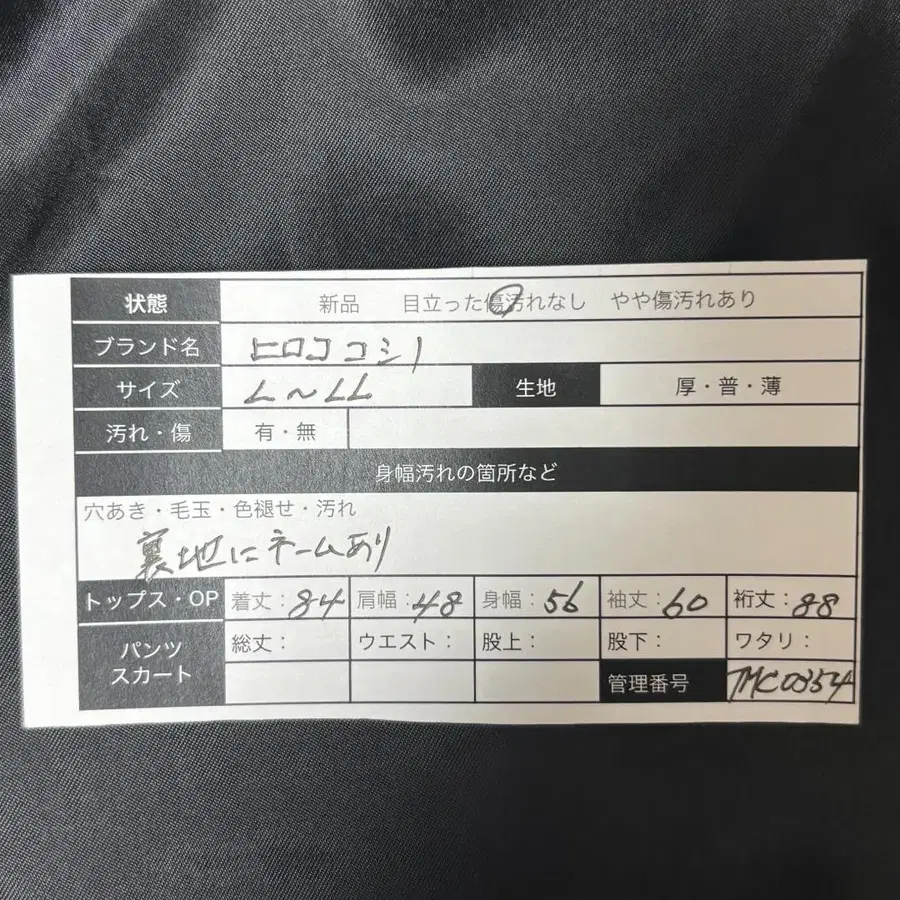 状態 新品 目立った傷汚れなし やや傷汚れあり
ブランド名 ヒロココシノ
サイズ L〜LL 生地 厚・普・薄
汚れ・傷 有・無
身幅汚れの箇所など
穴あき・毛玉・色褪せ・汚れ
裏地にネームあり
トップス・OP 着丈：84 肩幅：48 身幅：56 袖丈：60 裄丈：88
パンツ スカート 総丈： ウエスト： 股上： 股下： ワタリ：
管理番号 TMC0354